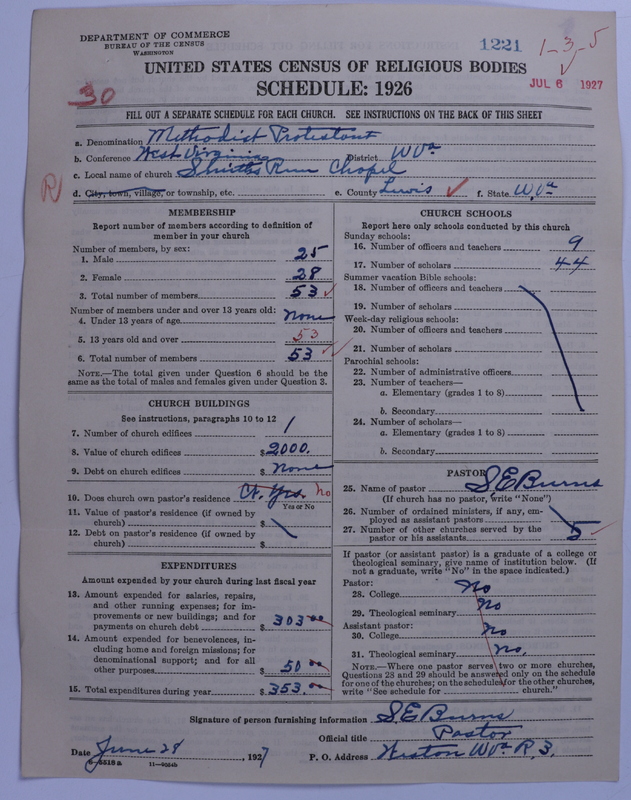 DEPARTMENT OF COMMERCE
BUREAU OF THE CENSUS
WASHINGTON
1221
1-3-5
UNITED STATES CENSUS OF RELIGIOUS BODIES
JUL 6 1927
SCHEDULE: 1926
30
FILL OUT A SEPARATE SCHEDULE FOR EACH CHURCH. SEE INSTRUCTIONS ON THE BACK OF THIS SHEET
a. Denomination Methodist Protestant
b. Conference West Virginia District W Va
c. Local name of church Run Chapel
R
d. City, town, village, or township, etc. e. County Lewis f. State W, Va
MEMBERSHIP
Report number of members according to definition of
member in your church
Number of members, by sex:
1. Male 25
2. Female 28
3. Total number of members 53
Number of members under and over 13 years old:
4. Under 13 years of age None
5. 13 years old and over 53
6. Total number of members 53
NOTE.—The total given under Question 6 should be the
same as the total of males and females given under Question 3.
CHURCH BUILDINGS
See instructions, paragraphs 10 to 12
7. Number of church edifices 1
8. Value of church edifices $2000.
9. Debt on church edifices $ None
10. Does church own pastor's residence Yes. No
Yes or No
11. Value of pastor's residence (if owned by
church) $
12. Debt on pastor's residence (if owned by
church) $
EXPENDITURES
Amount expended by your church during last fiscal year
13. Amount expended for salaries, repairs,
and other running expenses; for im-
provements or new buildings; and for
payments on church debt $ 303 00
14. Amount expended for benevolences, in-
cluding home and foreign missions; for
denominational support; and for all
other purposes $ 50 00
15. Total expenditures during year $ 353.00
CHURCH SCHOOLS
Report here only schools conducted by this church
Sunday schools:
16. Number of officers and teachers 9
17. Number of scholars 44
Summer vacation Bible schools:
18. Number of officers and teachers
19. Number of scholars
Week-day religious schools:
20. Number of officers and teachers
21. Number of scholars
Parochial schools:
22. Number of administrative officers
23. Number of teachers—
a. Elementary (grades 1 to 8)
b. Secondary
24. Number of scholars—
a. Elementary (grades 1 to 8)
b. Secondary
PASTOR
25. Name of pastor S E Burns
(If church has no pastor, write "None")
26. Number of ordained ministers, if any, em-
ployed as assistant pastors
27. Number of other churches served by the
pastor or his assistants 5
If pastor (or assistant pastor) is a graduate of a college or
theological seminary, give name of institution below. (If
not a graduate, write "No" in the space indicated.)
Pastor:
28. College No
29. Theological seminary No
Assistant pastor:
30. College No
31. Theological seminary No.
NOTE.—Where one pastor serves two or more churches,
Questions 28 and 29 should be answered only on the schedule
for one of the churches; on the schedules for the other churches,
write "See schedule for church."
Signature of person furnishing information S E Burns
Official title Pastor
Date June 28, 1927 P. O. Address Weston W Va R, 3.
6-5518 a 11-9554b